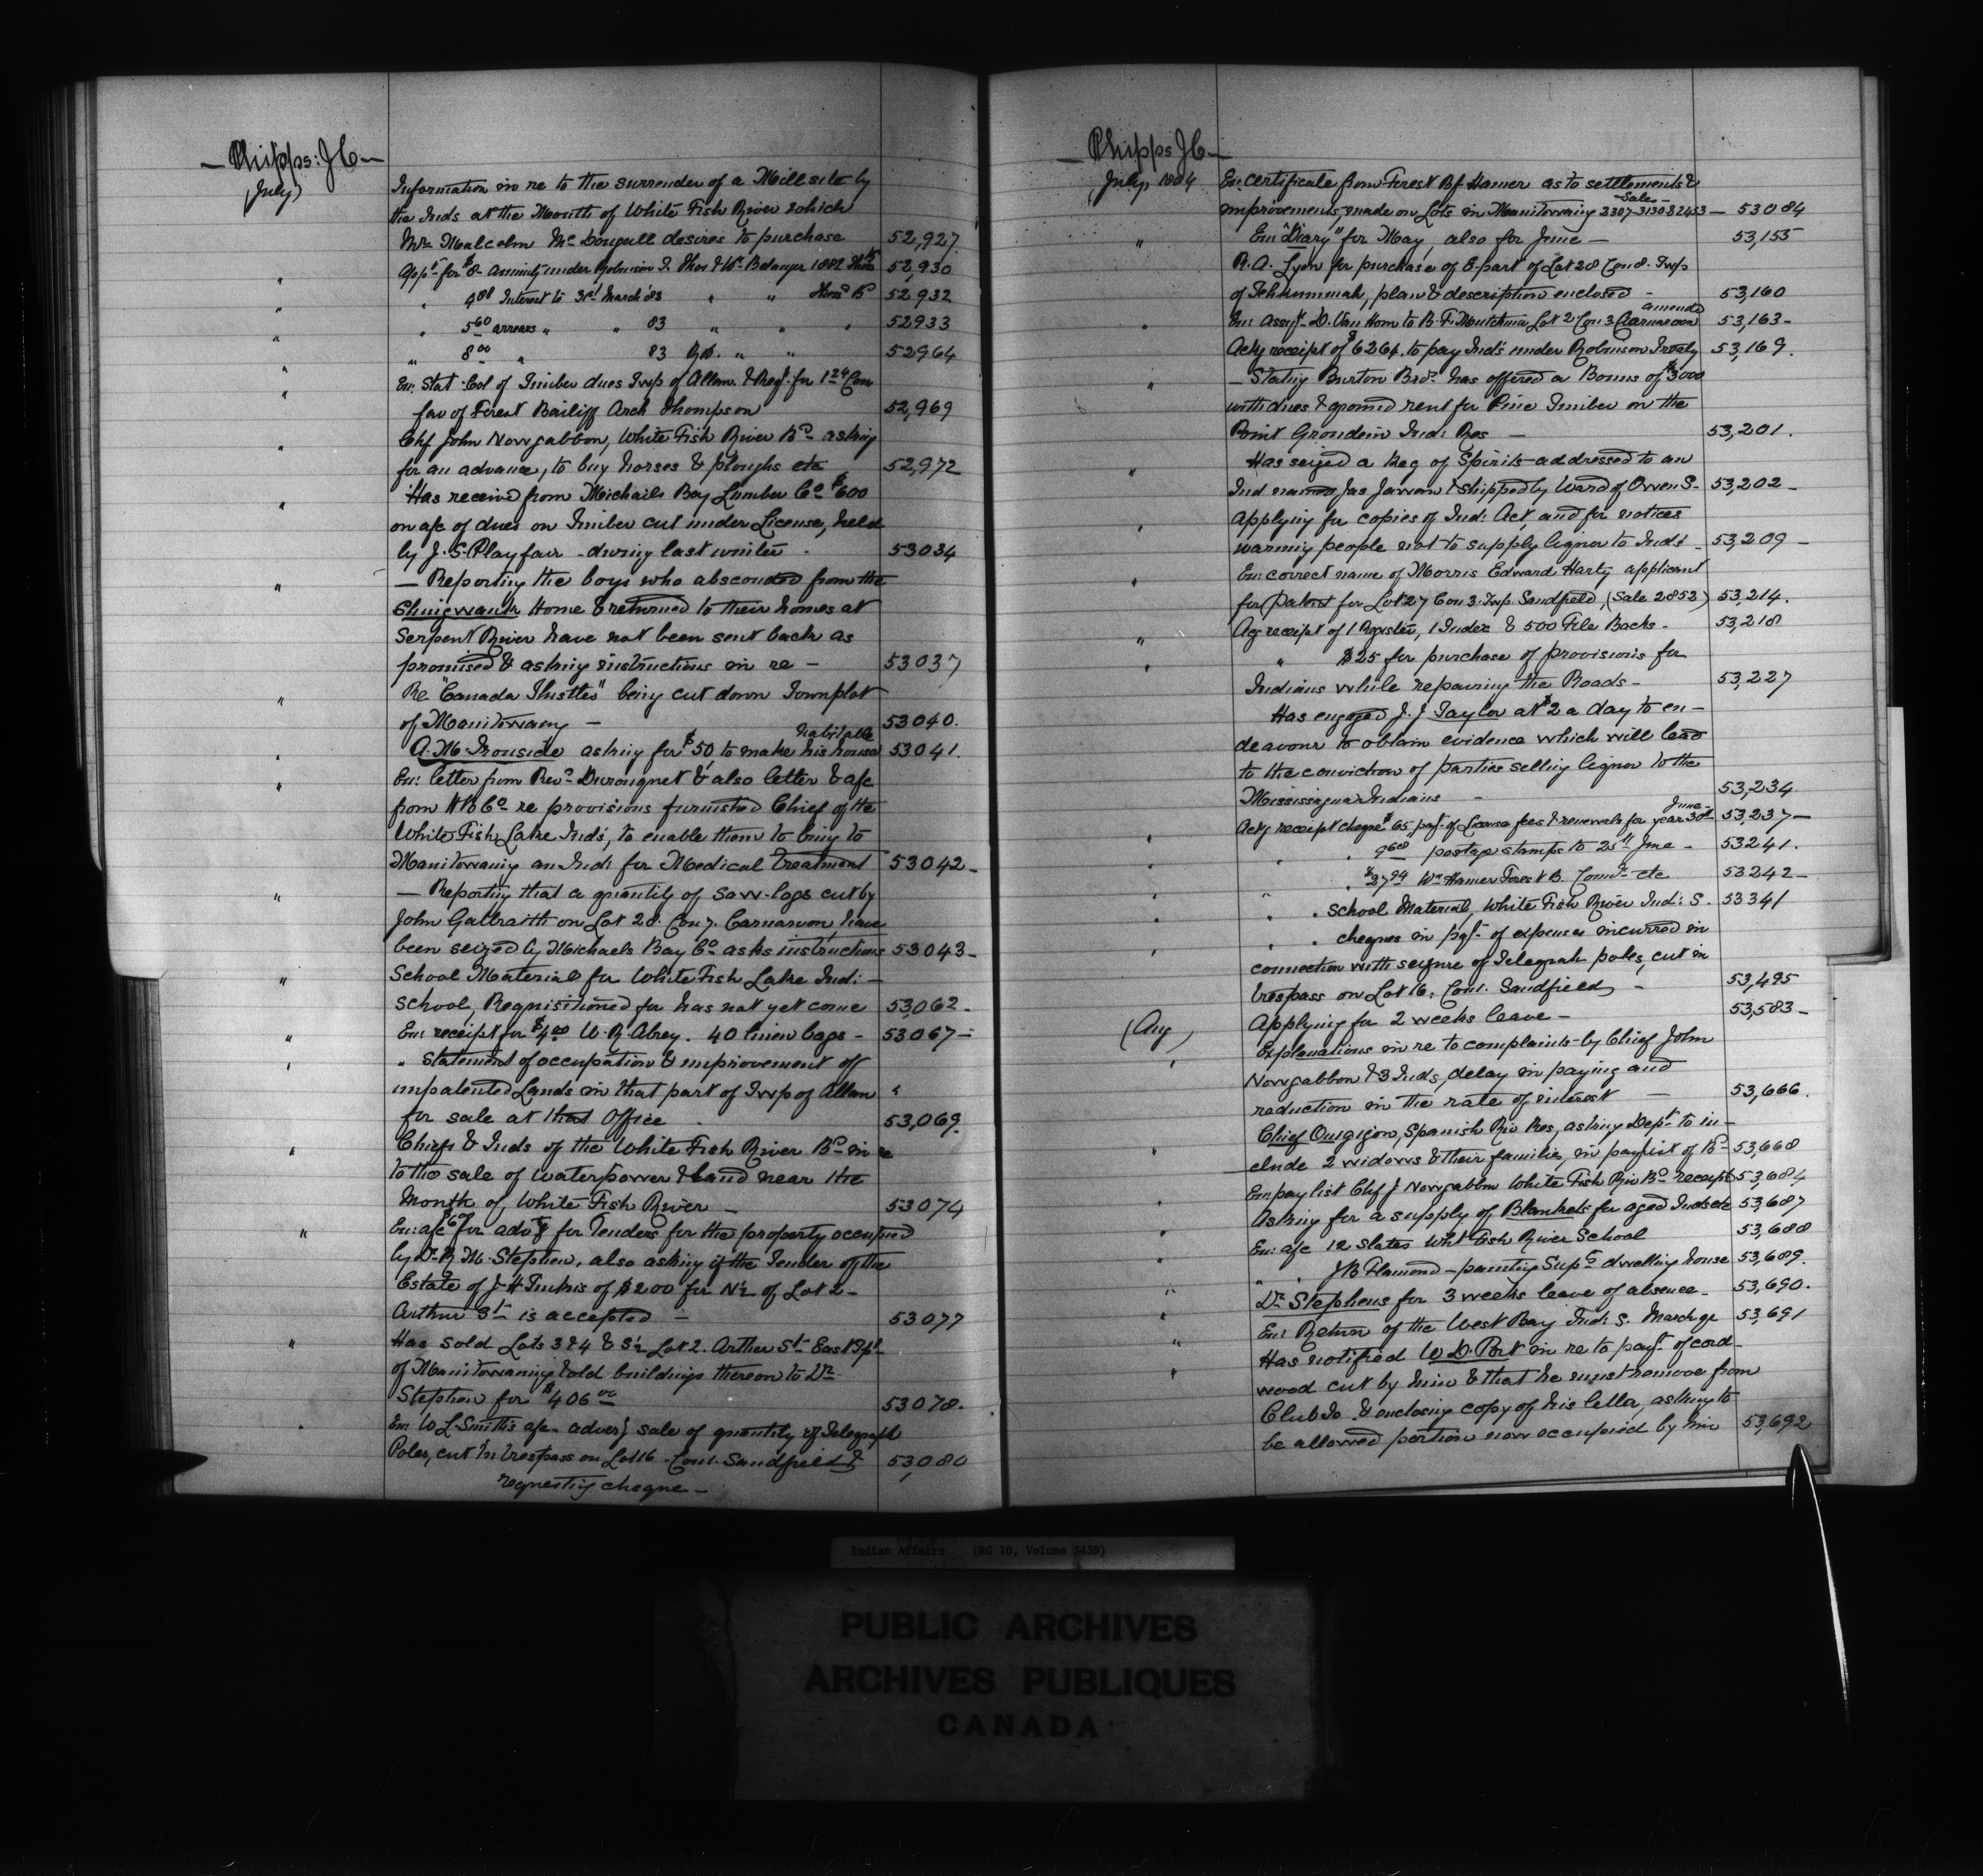 — Phipps: J C —
(July)
Information in re to the surrender of a Mill site by
the Inds at the Mouth of White Fish River which
Mr Malcolm McDougall desires to purchase 52,927
" Appn for $8 - annuity under Robinson T. Thos & Wm Belanger 1882 52,930
" " 4.88 Interest to 31st March '83 " " 52,932
" " 5.60 arrears " " 83 " " " 52933
" " 8.00 " 83 Rob. " " 52964
" En: Stat. Col of Timber dues Twp of Allan & Reqt for 1.24 Com
fav of Forest Bailiff Arch Thompson 52,969
" Chf John Nowgabbon, White Fish River Bd asking
for an advance, to buy horses & ploughs etc 52,972
" Has received from Michaels Bay Lumber Co $600
on a/c of dues on Timber cut under License, held
by J. S. Playfair - during last winter - 53034
" — Reporting the boys who absconded from the
Shingwauk Home & returned to their homes at
Serpent River have not been sent back as
promised & asking instructions in re — 53037
" Re "Canada Thistles" being cut down Townplot
of Manitowaning — 53040.
habitable
" A. M. Ironside asking for $50 to make his house 53041.
" En: letter from Revd Duronquet & also letter & a/c
from H B Co re provisions furnished Chief of the
White Fish Lake Inds, to enable them to bring to
Manitowaning an Ind: for Medical Treatment 53042 -
" — Reporting that a quantity of Saw-logs cut by
John Galbraith on Lot 28. Con 7. Carnarvon, have
been seized by Michaels Bay Co asks instructions 53043 -
" School Material for White Fish Lake Ind: —
School, Requisitioned for has not yet come 53,062 -
" En: receipt for $4.00 W. R. Abrey. 40 linen bags - 53067 -
" " Statement of occupation & improvement off
unpatented Lands in that part of Twp of Allan "
for sale at that Office - 53,069.
" Chiefs & Inds of the White Fish River Bd in re
to the sale of waterpower & Land near the
Mouth of White Fish River — 53074
" En: a/c $6.00 for advtg for Tenders for the property occupied
by Dr R. M. Stephen, also asking if the Tender of the
Estate of J. H. of $200 for N½ of Lot 2 -
Arthur St is accepted — 53077
" Has sold Lots 3 & 4 & S½ Lot 2. Arthur St East
of Manitowaning & old buildings thereon to Dr
Stephen for $406.00 53078.
" En: W L Smith's a/c advg sale of quantity of Telegraph
Poles, cut in trespass on Lot 16 - Con 1. Sandfield & 53,080
requesting cheque —
— Phipps J C —
(July) 1884 En: certificate from Forest Bf Hamer as to settlements &
Sales -
improvements, made on Lots in Manitowaning 2307-3130 & 2453 — 53084
" En: "Diary" for May, also for June — 53,155
R. A. Lyon for purchase of E part of Lot 28 Con 8. Twp
of Tehkummah, plan & description enclosed - 53,160
amended
" En: Assigt D. Van Horn to B. F. Lot 2 Con 3 Carnarvon 53,163 -
Ackg receipt of $6264. to pay Inds under Robinson Treaty 53,169.
" — Stating Burton Bros. has offered a Bonus of $3000
with dues & ground rent for Pine Timber on the
Point Grondin Ind: Res — 53,201.
" Has seized a Keg of Spirits addressed to an
Ind named Jas & shipped by Ward of Owen S- 53,202 -
" Applying for copies of Ind: Act, and for notices
warning people not to supply liquor to Inds - 53,209 -
" En: correct name of Morris Edward Harty applicant
for patent for Lot 27 Con 3. Twp Sandfield, (Sale 2852) 53,214.
" Ackg receipt of 1 Register, 1 Index & 500 File Backs - 53,218
" " $25 for purchase of provisions for
Indians while repairing the Roads - 53,227
Has engaged J. J Taylor at $2 a day to en-
deavour to obtain evidence which will lead
to the conviction of parties selling liquor to the
Mississagua Indians - 53,234
June -
" Ackg receipt cheque $65 payt of License fees & renewals for year 30th 53,237 —
" " " 9.68 postage stamps to 25th June - 53241.
" " $27.94 Wm Hamer Forest B. Comn etc 53242 -
" " " School Material, White Fish River Ind: S. 53341
" " " cheques in payt of expenses incurred in
connection with seizure of Telegraph poles, cut in
trespass on Lot 16, Con 1. Sandfield - 53,495
(Aug) Applying for 2 weeks leave — 53,583 -
" Explanations in re to complaints by Chief John
Nowgabbon & 3 Inds, delay in paying and
reduction in the rate of interest — 53,666.
" Chief Ouigigon, Spanish Riv Res, asking Dept to in-
clude 2 widows & their families, in paylist of Bd 53,668
En: pay list Chf J Nowgabbon White Fish Riv Bd receipt 53,684
" Asking for a supply of Blankets for aged Inds etc 53,687
" En: a/c 12 Slates Wht Fish River School 53,688
" " " J B Flamond - painting Supts dwelling house 53,689.
" Dr Stephens for 3 weeks leave of absence - 53,690.
" En: Return of the West Bay Ind: S. March qr 53,691
" Has notified W. D. Port in re to payt of cord-
wood cut by him & that he must remove from
Club Is. & enclosing copy of his letter, asking to
be allowed portion now occupied by him 53,692
Indian Affairs (RG 10, Volume 3439)
PUBLIC ARCHIVES
ARCHIVES PUBLIQUES
CANADA